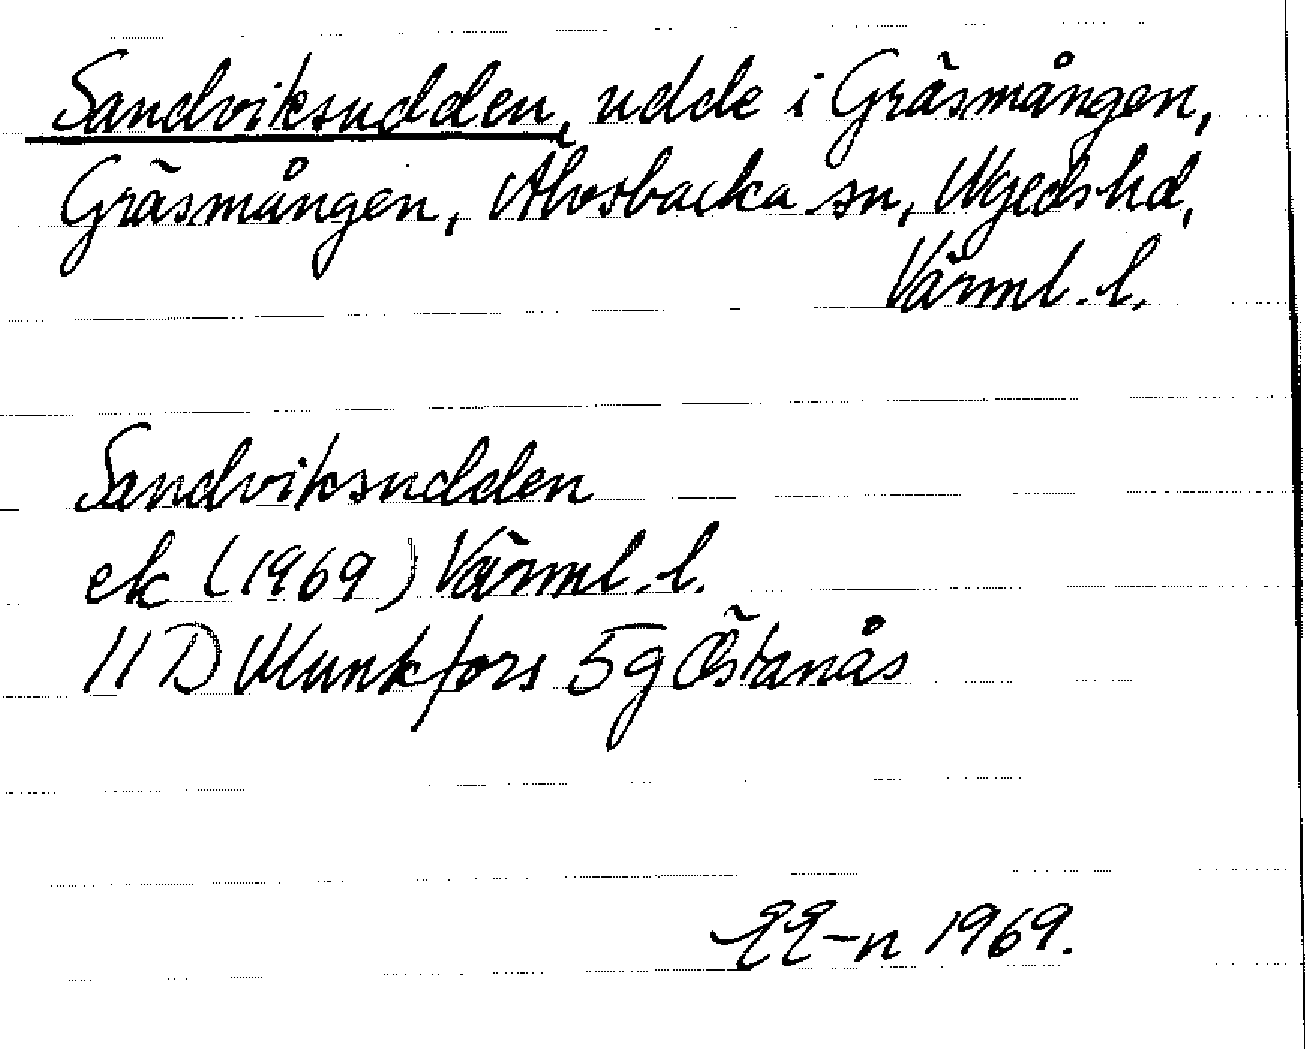 Sandviksudden, udde i Gräsmången,
Gräsmången, Älvsbacka sn, Nyeds hd,
Värml. l.
Sandviksudden
ek (1969) Värml. l.
11 D Munkfors 5 g Östanås
1969.